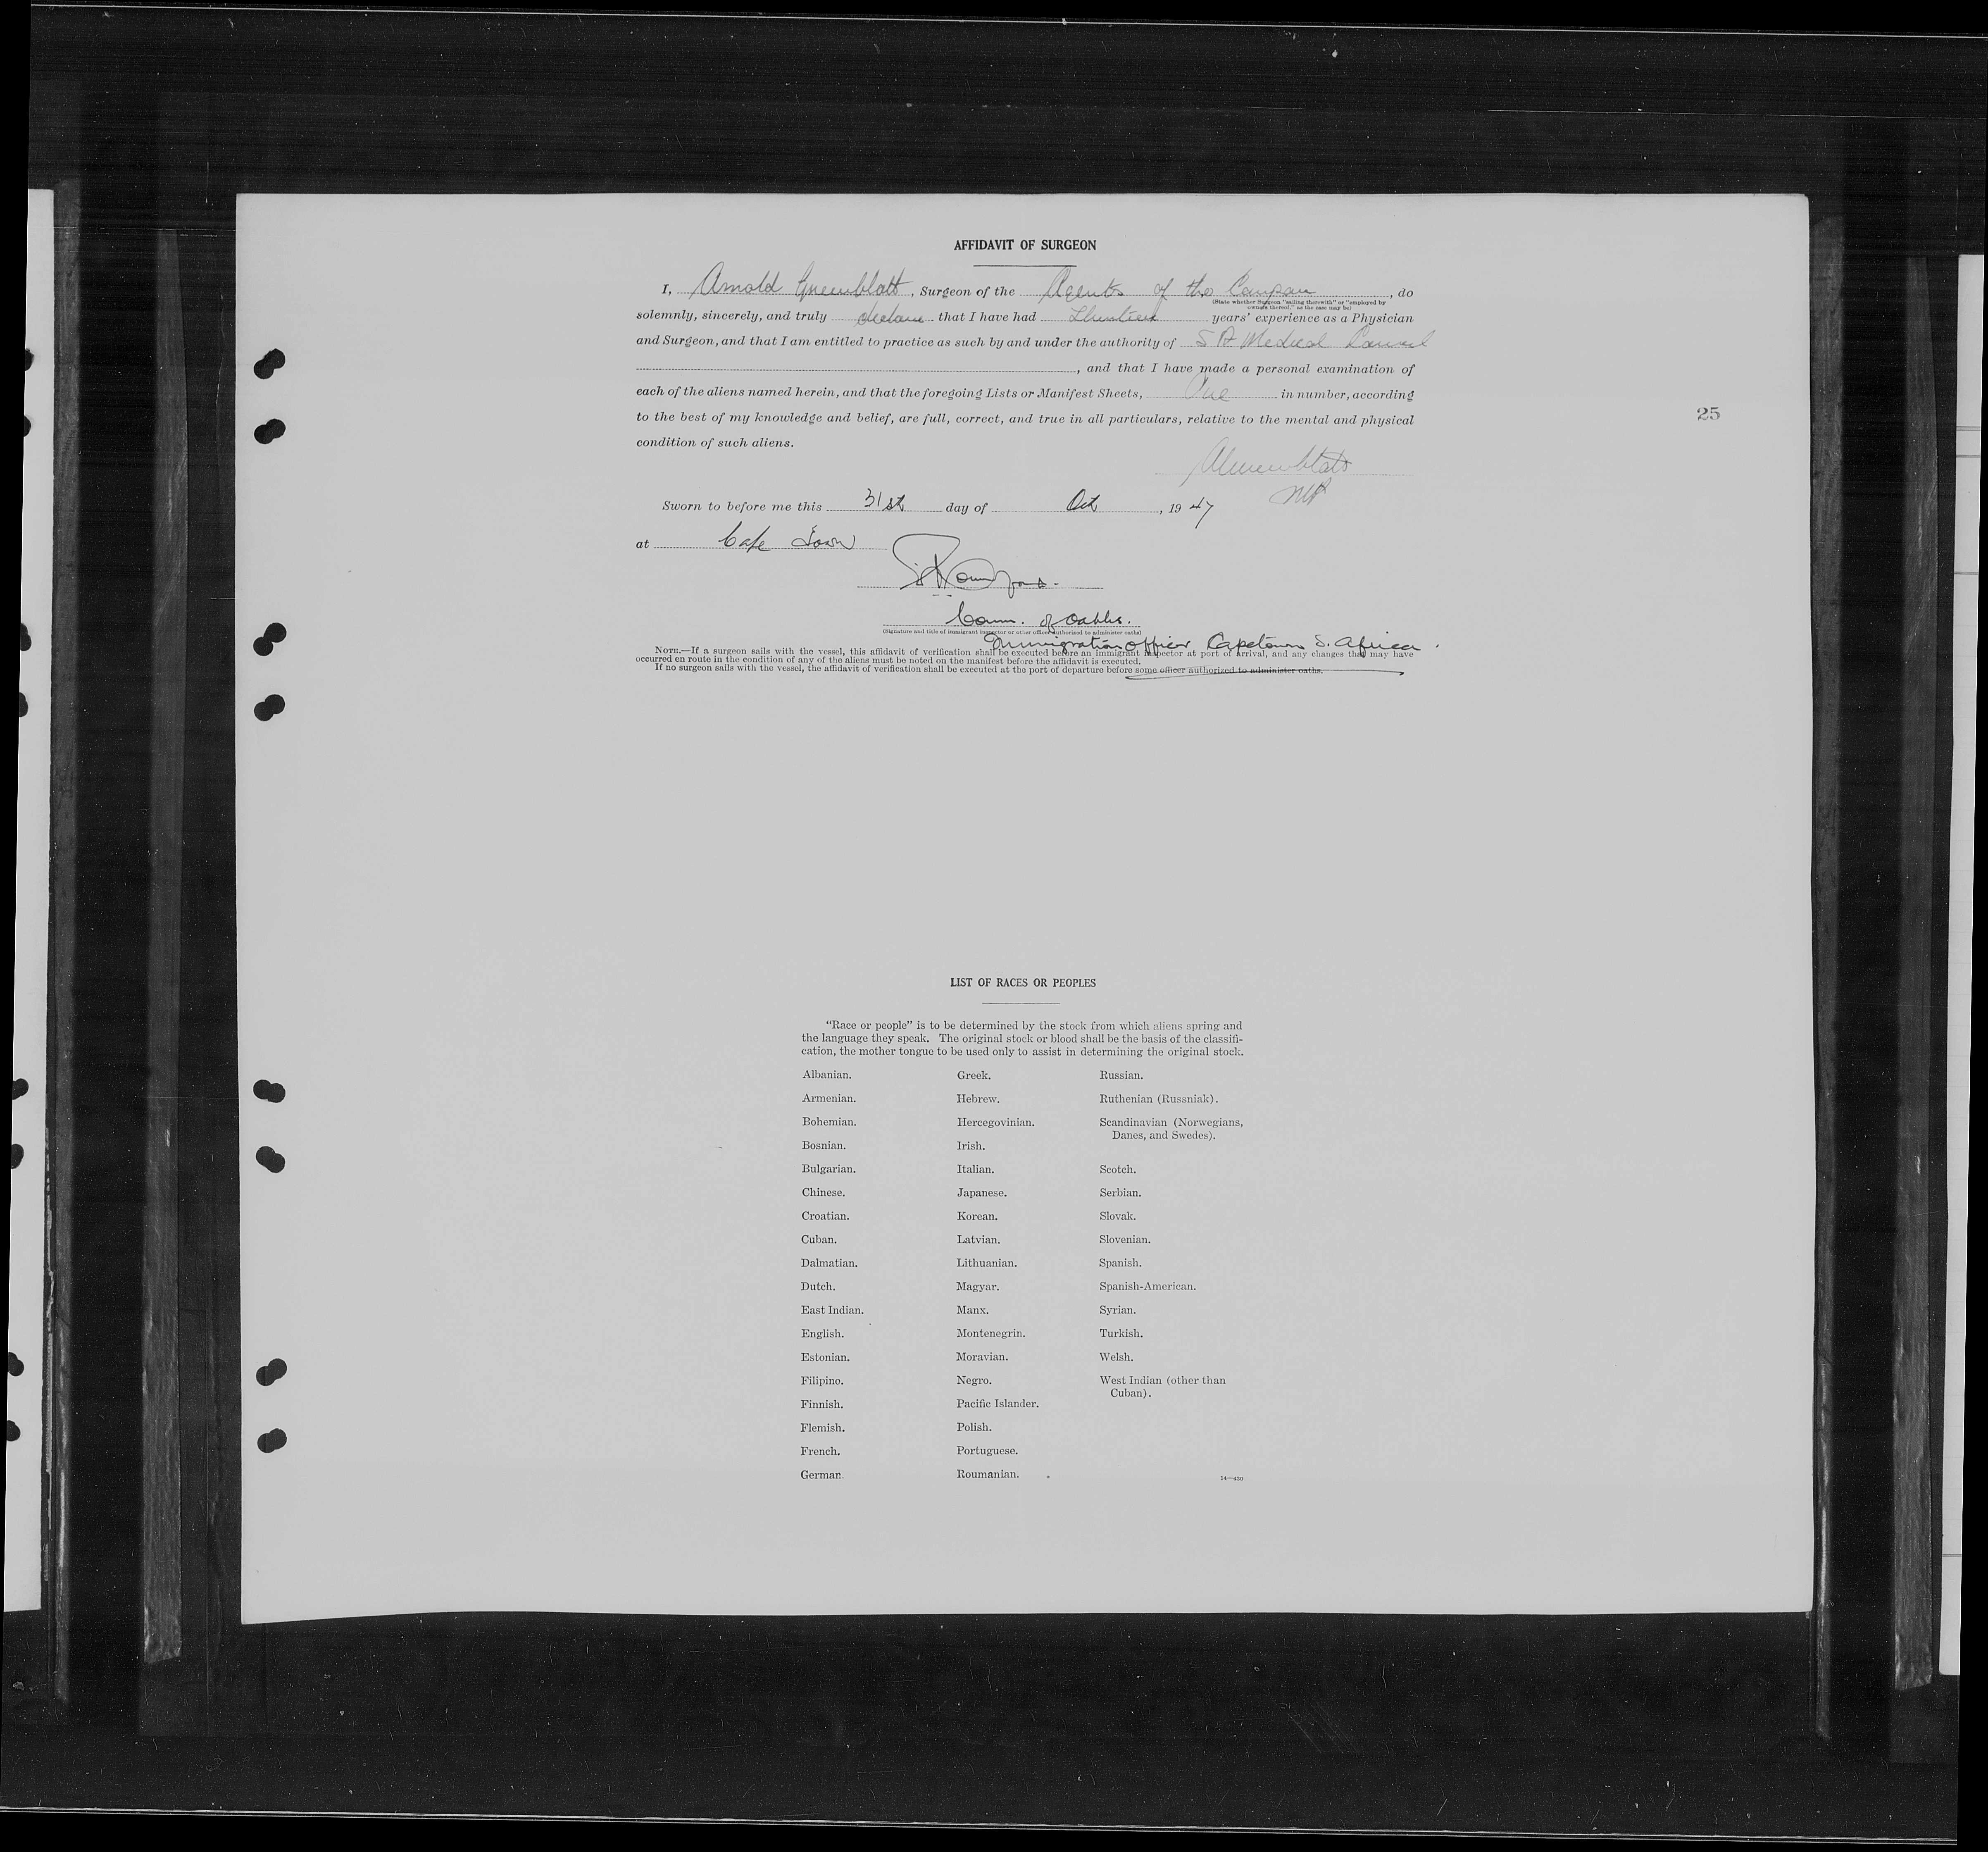 AFFIDAVIT OF SURGEON
I, Arnold Greenblatt, Surgeon of the Agents of the Company, do
(State whether Surgeon "sailing therewith" or "employed by
owners thereof," as the case may be)
solemnly, sincerely, and truly declare that I have had years' experience as a Physician
and Surgeon, and that I am entitled to practice as such by and under the authority of S A Medical Council
, and that I have made a personal examination of
each of the aliens named herein, and that the foregoing Lists or Manifest Sheets, One in number, according
to the best of my knowledge and belief, are full, correct, and true in all particulars, relative to the mental and physical
condition of such aliens.
25
AGreenblatt
Sworn to before me this 31st day of Oct, 1947
at Cape Town
Comm. of Oaths.
(Signature and title of immigrant inspector or other officer authorized to administer oaths)
Immigration Officer Capetown S. Africa.
NOTE.—If a surgeon sails with the vessel, this affidavit of verification shall be executed before an immigrant inspector at port of arrival, and any changes that may have
occurred en route in the condition of any of the aliens must be noted on the manifest before the affidavit is executed.
If no surgeon sails with the vessel, the affidavit of verification shall be executed at the port of departure before some officer authorized to administer oaths.
LIST OF RACES OR PEOPLES
"Race or people" is to be determined by the stock from which aliens spring and
the language they speak. The original stock or blood shall be the basis of the classifi-
cation, the mother tongue to be used only to assist in determining the original stock.
Albanian.
Armenian.
Bohemian.
Bosnian.
Bulgarian.
Chinese.
Croatian.
Cuban.
Dalmatian.
Dutch.
East Indian.
English.
Estonian.
Filipino.
Finnish.
Flemish.
French.
German.
Greek.
Hebrew.
Hercegovinian.
Irish.
Italian.
Japanese.
Korean.
Latvian.
Lithuanian.
Magyar.
Manx.
Montenegrin.
Moravian.
Negro.
Pacific Islander.
Polish.
Portuguese.
Roumanian.
Russian.
Ruthenian (Russniak).
Scandinavian (Norwegians,
Danes, and Swedes).
Scotch.
Serbian.
Slovak.
Slovenian.
Spanish.
Spanish-American.
Syrian.
Turkish.
Welsh.
West Indian (other than
Cuban).
14—430